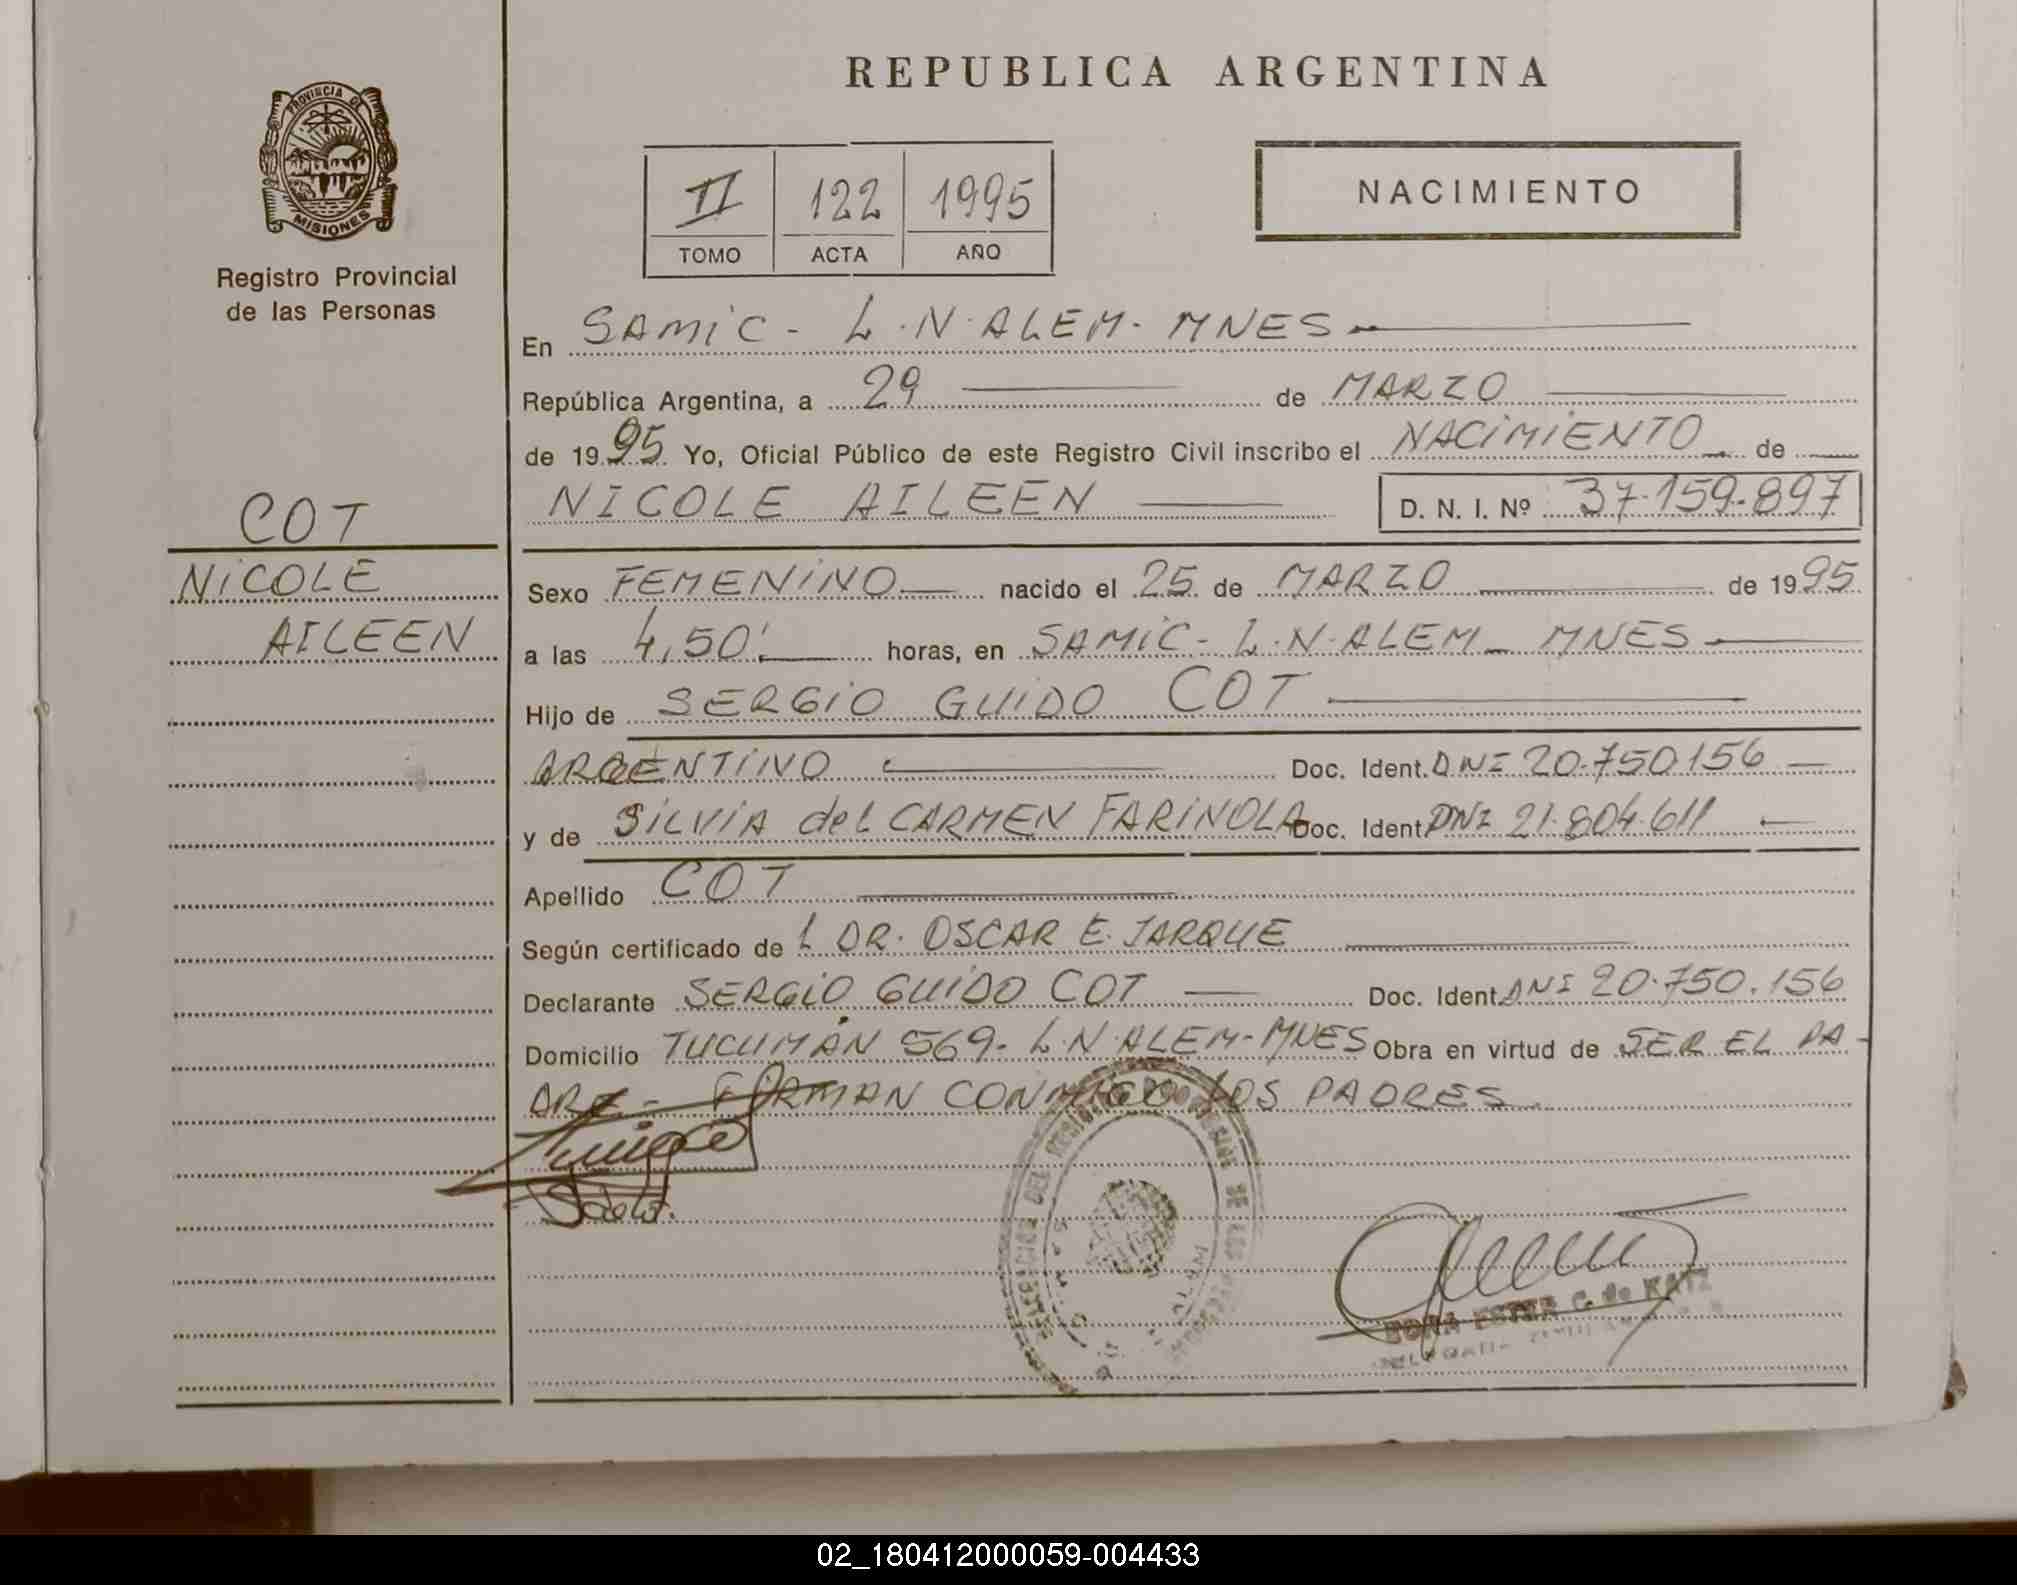 REPUBLICA ARGENTINA
PROVINCIA DE
MISIONES
Registro Provincial
de las Personas
II 122 1995
TOMO ACTA AÑO
NACIMIENTO
En SAMIC - L.N.ALEM - MNES
República Argentina, a 29 de MARZO
de 1995 Yo, Oficial Público de este Registro Civil inscribo el NACIMIENTO de
NICOLE AILEEN D. N. I. Nº 37.159.897
COT
NICOLE
AILEEN
Sexo FEMENINO nacido el 25 de MARZO de 1995
a las 4,50' horas, en SAMIC - L.N.ALEM - MNES
Hijo de SERGIO GUIDO COT
ARGENTINO Doc. Ident. DNI 20.750.156
y de SILVIA del CARMEN FARINOLA Doc. Ident. DNI 21.804.611
Apellido COT
Según certificado de L DR. OSCAR E. JARQUE
Declarante SERGIO GUIDO COT Doc. Ident. DNI 20.750.156
Domicilio TUCUMÁN 569 - L.N.ALEM - MNES Obra en virtud de SER EL PA-
DRE - FIRMAN CONMIGO LOS PADRES
ESTER C. de KATZ
02_180412000059-004433